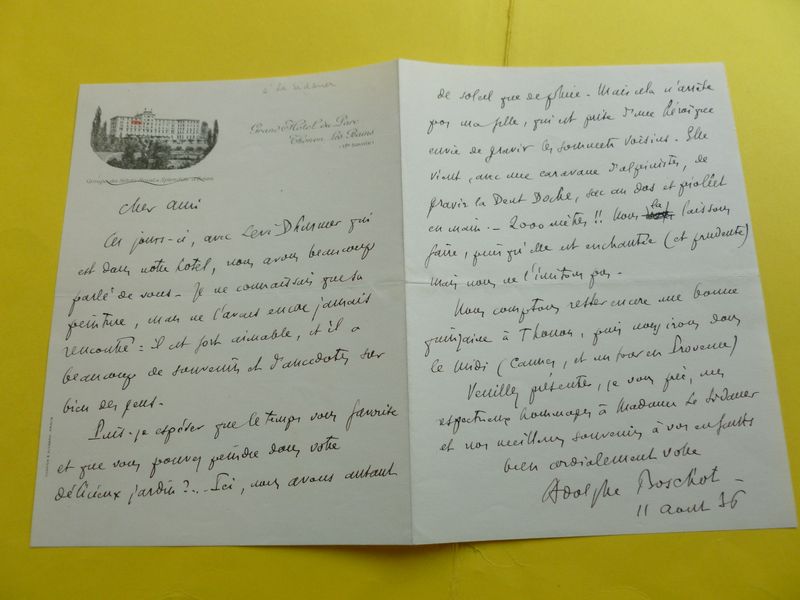 à Le Sidaner
Grand Hôtel du Parc
Thonon les Bains
Cher ami
Ces jours-ci, avec Levi-Dhurmer qui
est dans notre hotel, nous avons beaucoup
parlé de vous – Je ne connaissais que sa
peinture, mais ne l'avais encore jamais
rencontré : Il est fort aimable, et il a
beaucoup de souvenirs et d'anecdotes sur
bien des gens.
Puis-je espérer que le temps vous favorise
et que vous pouvez peindre dans votre
délicieux jardin ?... Ici, nous avons autant
de soleil que de pluie. Mais cela n'arrête
pas ma fille, qui est prise d'une héroïque
envie de gravir les sommets voisins. Elle
vient, avec une caravane d'alpinistes, de
gravir la Dent Doche, sac au dos et piollet
en main. – 2000 mètres !! Nous la laissons
faire, puisqu'elle est enchantée (et prudente)
mais nous ne l'imitons pas.
Nous comptons rester encore une bonne
quinzaine à Thonon, puis nous irons dans
le Midi (Cannes, et un tour en Provence)
Veuillez présenter, je vous prie, mes
respectueux hommages à Madame Le Sidaner
et nos meilleurs souvenirs à vos enfants
bien cordialement votre
Adolphe Boschot –
11 aout 36